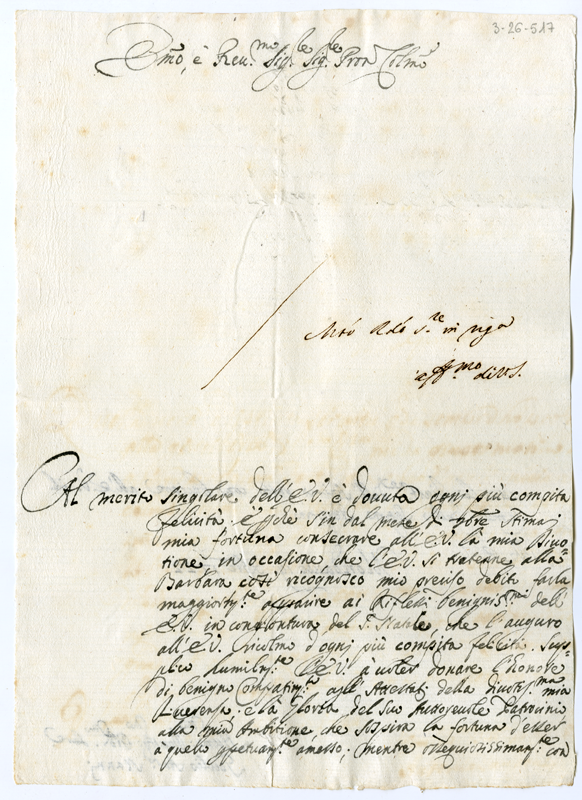 3-26-517
Emo, è Reu.mo Sig.re Sig.re Pron Colmo
Molto Rdo S.re in riga
aff.mo di VS.
Al merito singolare dell'E.V. è douuta ogni più compita
felicità. E perche sin dal mese di 9bre stimai
mia fortuna consecrare all'E.V. la mia Diuo-
tione, in occasione, che l'E.V. si tratenne alla
Barbara costì ricognosco mio preciso debito farla
maggiorm.te apparire ai Riflessi benigniss.mi dell'
E.V. in congiontura del S. Natale, che l'auguro
all'E.V. ricolmo d'ogni più compita felicità. Sup-
plico humilm.te l'E.V. à uoler donare l'honore
di benigno compatim.to agl'Attestati della diuotiss.ma mia
Riuerenza, è la gloria del suo Autoreuole Patrocinio
alla mia Ambitione, che sospira la fortuna d'esser
à quello perpetuam.te amesso; mentre ossequiosissimam.te con